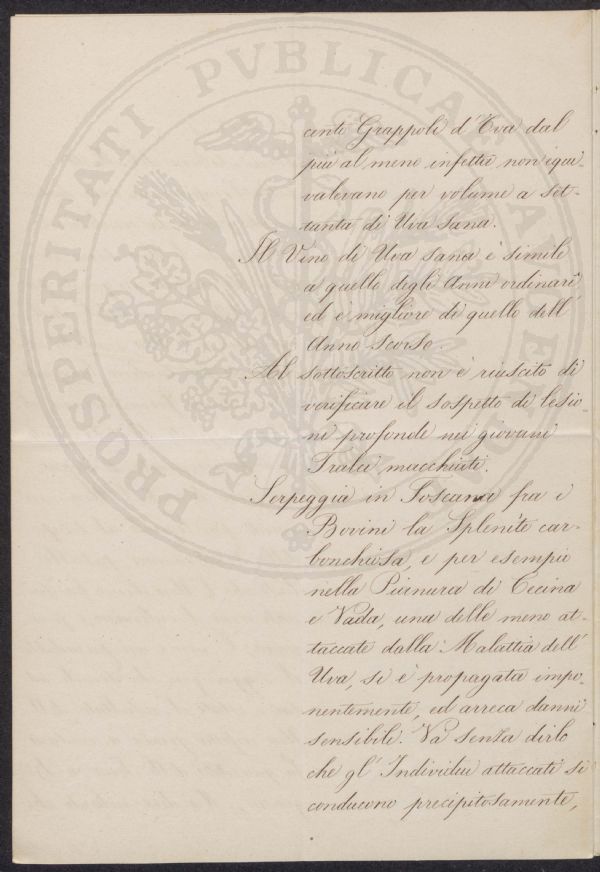 cento Grappoli d'Uva dal
più al meno infetta non equi-
valevano per volume a set-
tanta di Uva sana.
Il Vino di Uva sana è simile
a quello degli Anni ordinari
ed è migliore di quello dell'
Anno scorso.
Al sottoscritto non è riuscito di
verificare il sospetto di lesio-
ni profonde nei giovani
Tralci macchiati.
Serpeggia in Toscana fra i
Bovini la Splenite car-
bonchiosa, e per esempio
nella Pianura di Cecina
e Vada, una delle meno at-
taccate dalla Malattia dell'
Uva, si è propagata impo-
nentemente, ed arreca danni
sensibili. Va senza dirlo
che gl'Individui attaccati si
conducono precipitosamente,
PROSPERITATI PVBLICAE